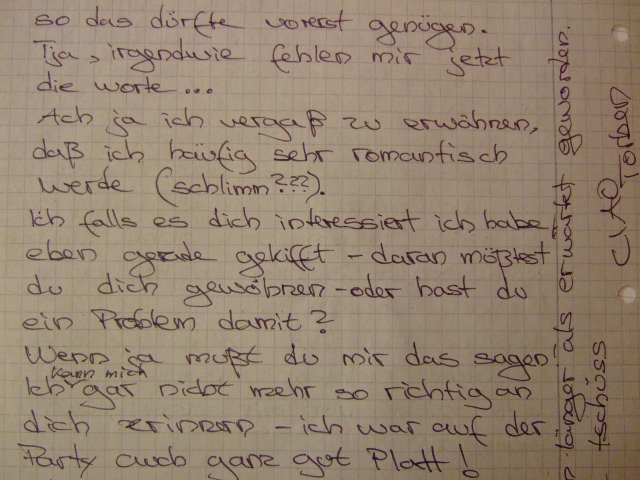 so das dürfte vorerst genügen.
Tja, irgendwie fehlen mir jetzt
die worte...
Ach ja ich vergaß zu erwähnen,
daß ich häufig sehr romantisch
werde (schlimm???).
Ich falls es dich interessiert ich habe
eben gerade gekifft - daran müßtest
du dich gewöhnen - oder hast du
ein Problem damit?
Wenn ja mußt du mir das sagen
Ich kann mich gar nicht mehr so richtig an
dich erinnern - ich war auf der
Party auch ganz gut Platt!
länger als erwartet geworden.
tschüss
Torben